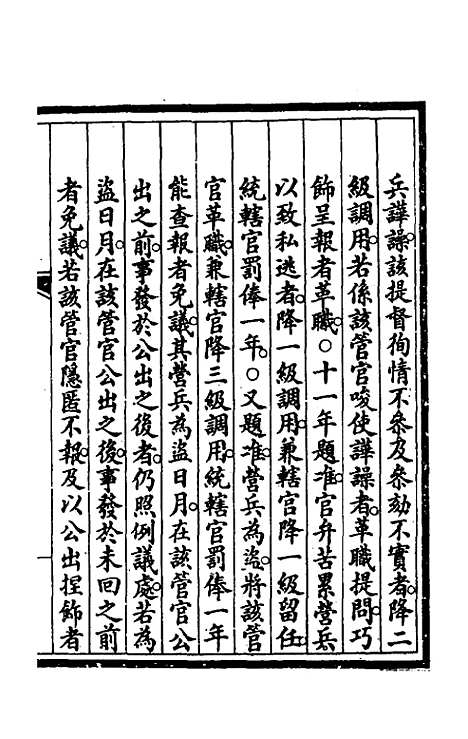 兵譁譟該提督徇情不叅及叅劾不實者降二
級調用若係該管官唆使譁譟者革職提問巧
飾呈報者革職○十一年題准官弁苦累營兵
以致私逃者降一級調用兼轄官降一級留任
統轄官罰俸一年○又題准營兵為盜將該管
官革職兼轄官降三級調用統轄官罰俸一年
能查報者免議其營兵為盜日月在該管官公
出之前事發於公出之後者仍照例議處若為
盜日月在該管官公出之後事發於未回之前
者免議若該管官隱匿不報及以公出捏飾者